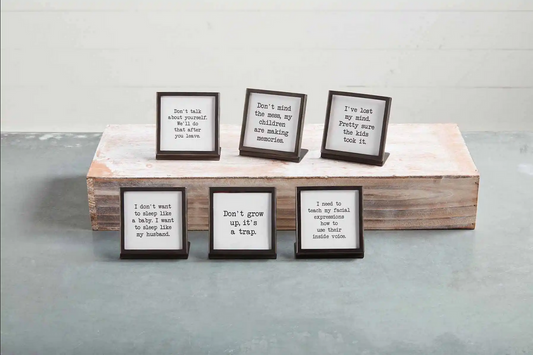 Don't talk
about yourself.
We'll do
that after
you leave.
Don't mind
the mess, my
children
are making
memories.
I've lost
my mind.
Pretty sure
the kids
took it.
I don't want
to sleep like
a baby. I want
to sleep like
my husband.
Don't grow
up, it's
a trap.
I need to
teach my facial
expressions
how to
use their
inside voice.